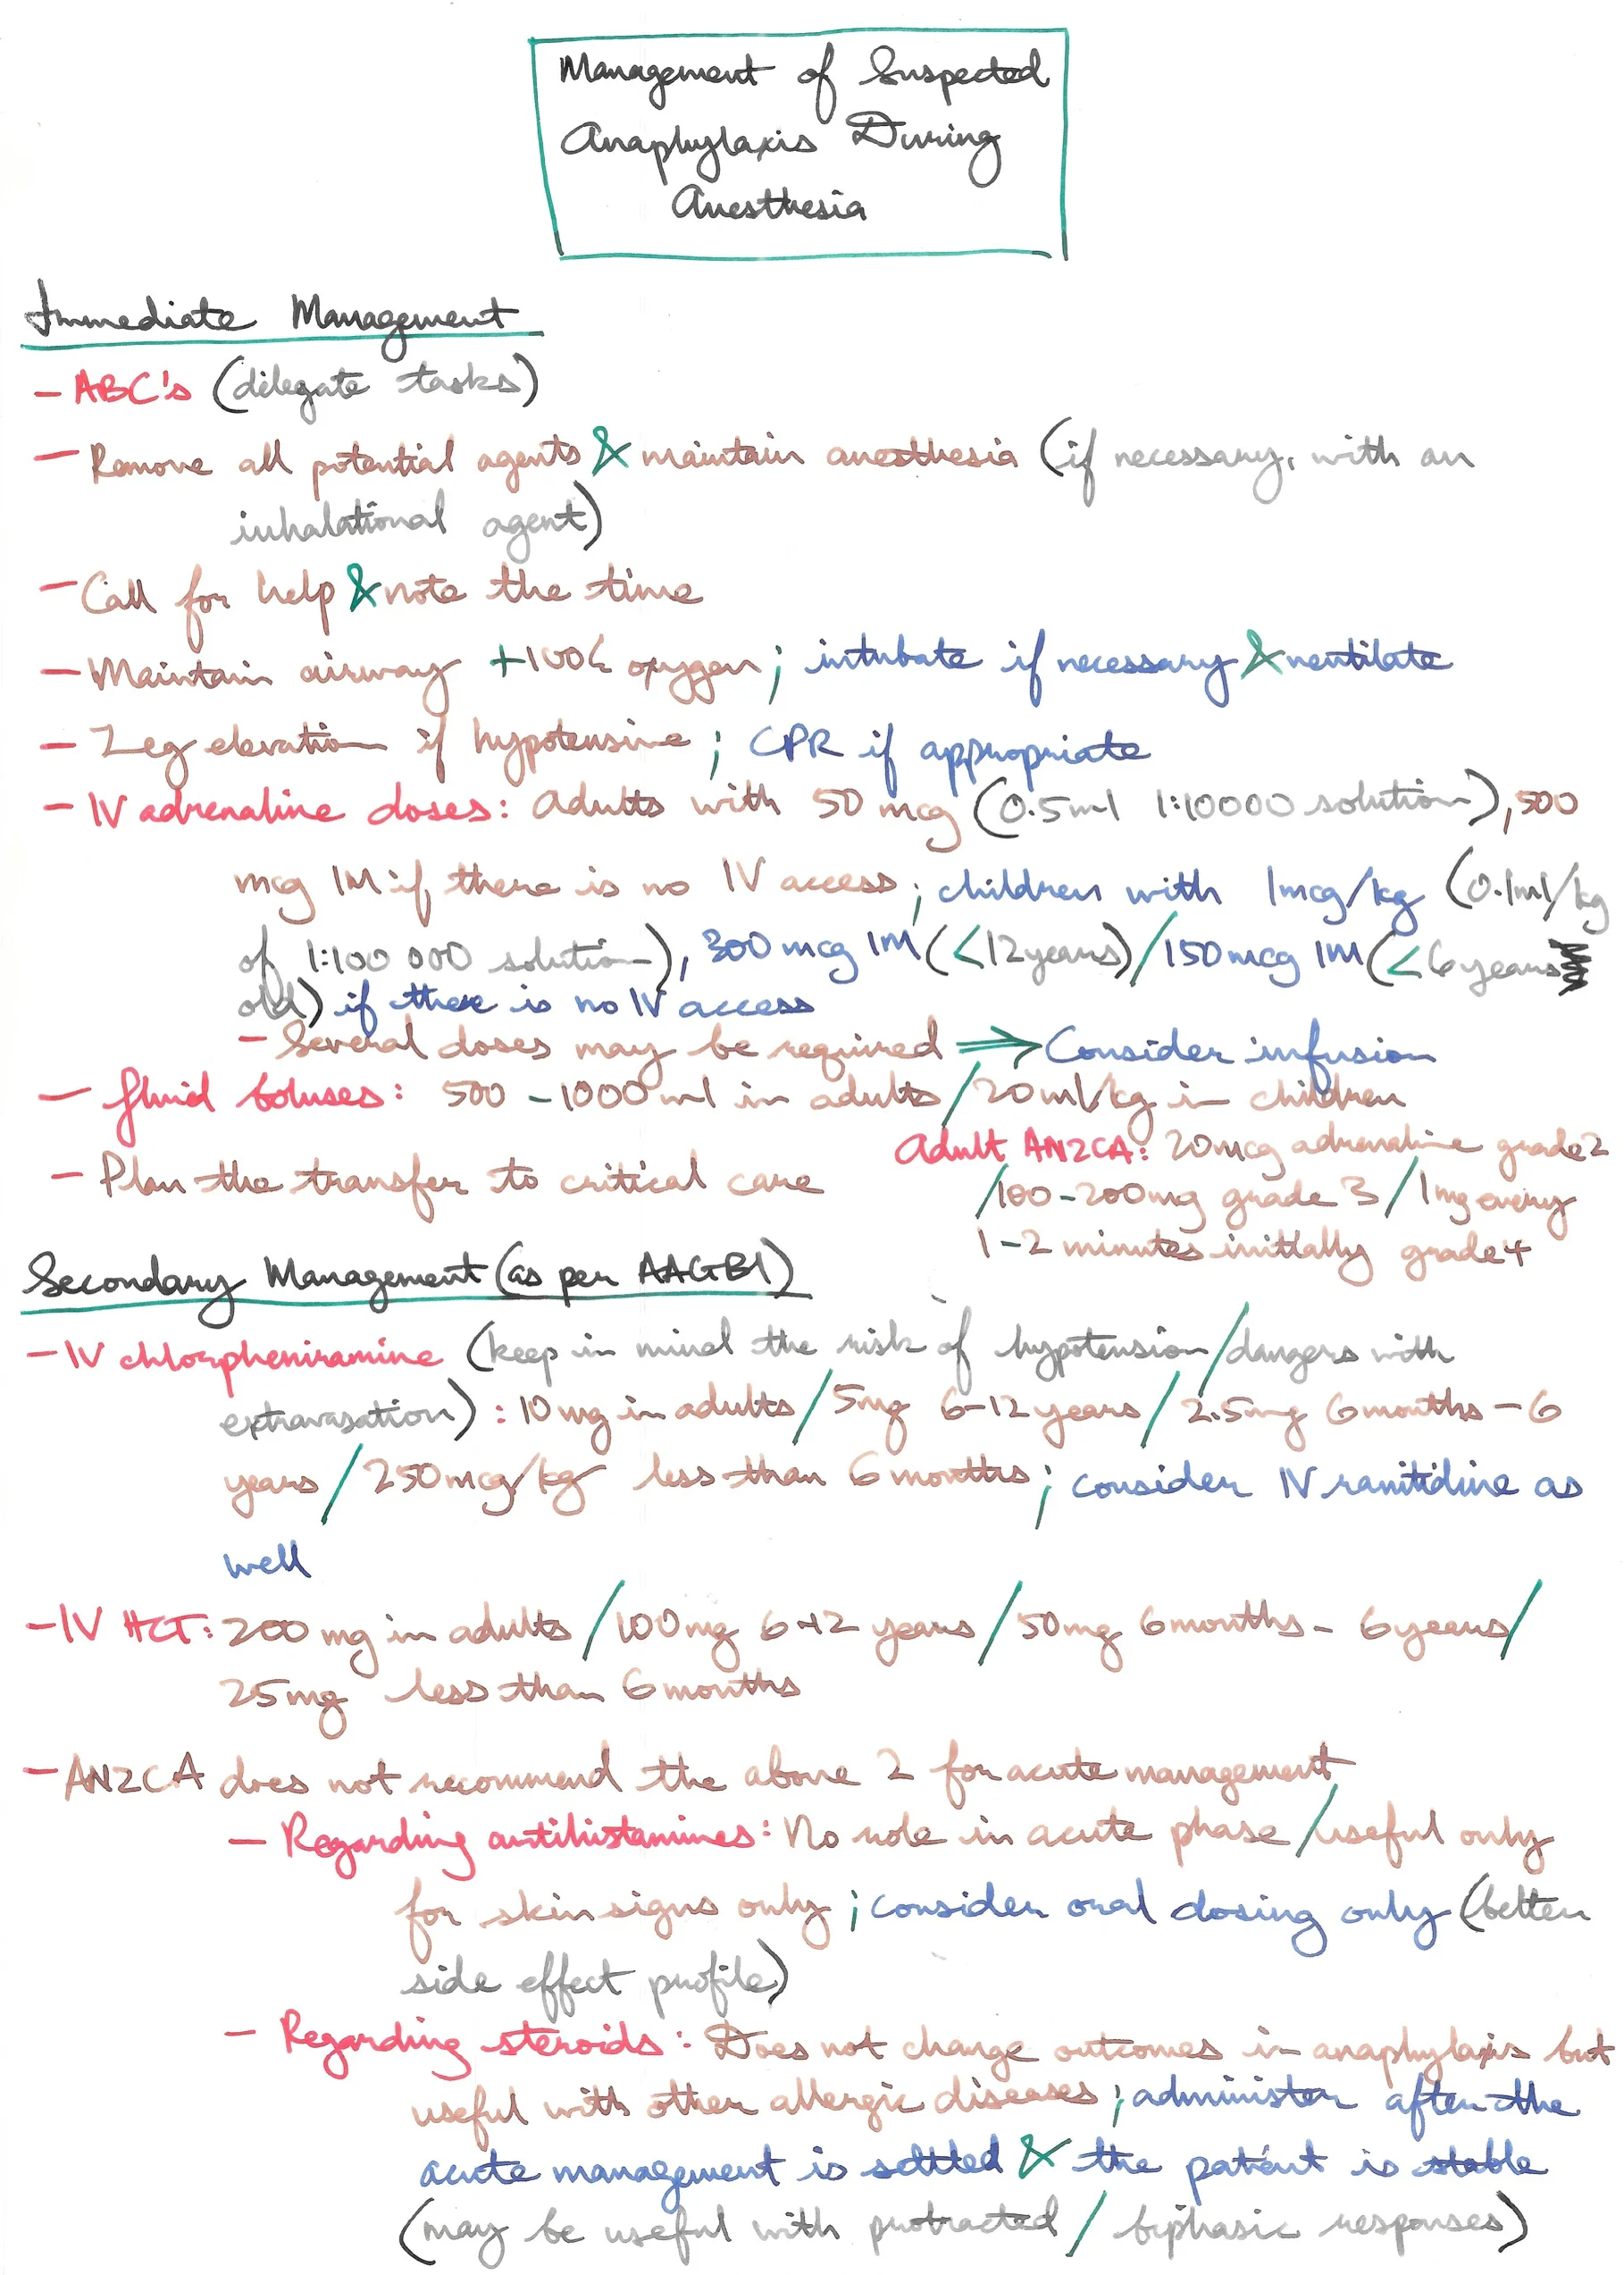 Management of Suspected
Anaphylaxis During
Anesthesia
Immediate Management
- ABC's (dilegate tasks)
- Remove all potential agents & maintain anesthesia (if necessary, with an
inhalational agent)
- Call for help & note the time
- Maintain airway + 100% oxygen; intubate if necessary & ventilate
- Leg elevation if hypotensive; CPR if appropriate
- IV adrenaline doses: Adults with 50 mcg (0.5ml 1:10000 solution), 500
mcg IM if there is no IV access; children with 1mcg/kg (0.1ml/kg
of 1:100 000 solution), 300 mcg IM (<12 years) / 150 mcg IM (<6 years
old) if there is no IV access
- Several doses may be required ⇒ Consider infusion
- Fluid boluses: 500 - 1000 ml in adults / 20ml/kg in children
- Plan the transfer to critical care
Adult ANZCA: 20mcg adrenaline grade 2
/ 100-200mg grade 3 / 1mg every
1-2 minutes initially grade 4
Secondary Management (as per AAGBI)
- IV chlorpheniramine (keep in mind the risk of hypotension / dangers with
extravasation): 10 mg in adults / 5mg 6-12 years / 2.5mg 6 months - 6
years / 250 mcg/kg less than 6 months; consider IV ranitidine as
well
- IV HCT: 200 mg in adults / 100 mg 6-12 years / 50 mg 6 months - 6 years /
25mg less than 6 months
- ANZCA does not recommend the above 2 for acute management
- Regarding antihistamines: No role in acute phase / useful only
for skin signs only; consider oral dosing only (better
side effect profile)
- Regarding steroids: Does not change outcomes in anaphylaxis but
useful with other allergic diseases; administer after the
acute management is settled & the patient is stable
(may be useful with protracted / biphasic responses)